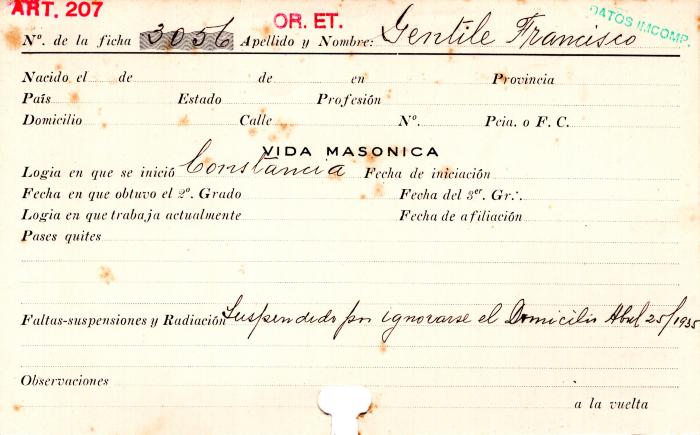 ART. 207
OR. ET.
DATOS IMCOMP.
Nº. de la ficha 3056 Apellido y Nombre: Gentile Francisco
Nacido el de de en Provincia
País Estado Profesión
Domicilio Calle Nº. Pcia. o F. C.
VIDA MASONICA
Logia en que se inició Constancia Fecha de iniciación
Fecha en que obtuvo el 2º. Grado Fecha del 3er. Gr∴
Logia en que trabaja actualmente Fecha de afiliación
Pases quites
Faltas-suspensiones y Radiación Suspendido por ignorarse el Domicilio Abril 25/1935
Observaciones
a la vuelta